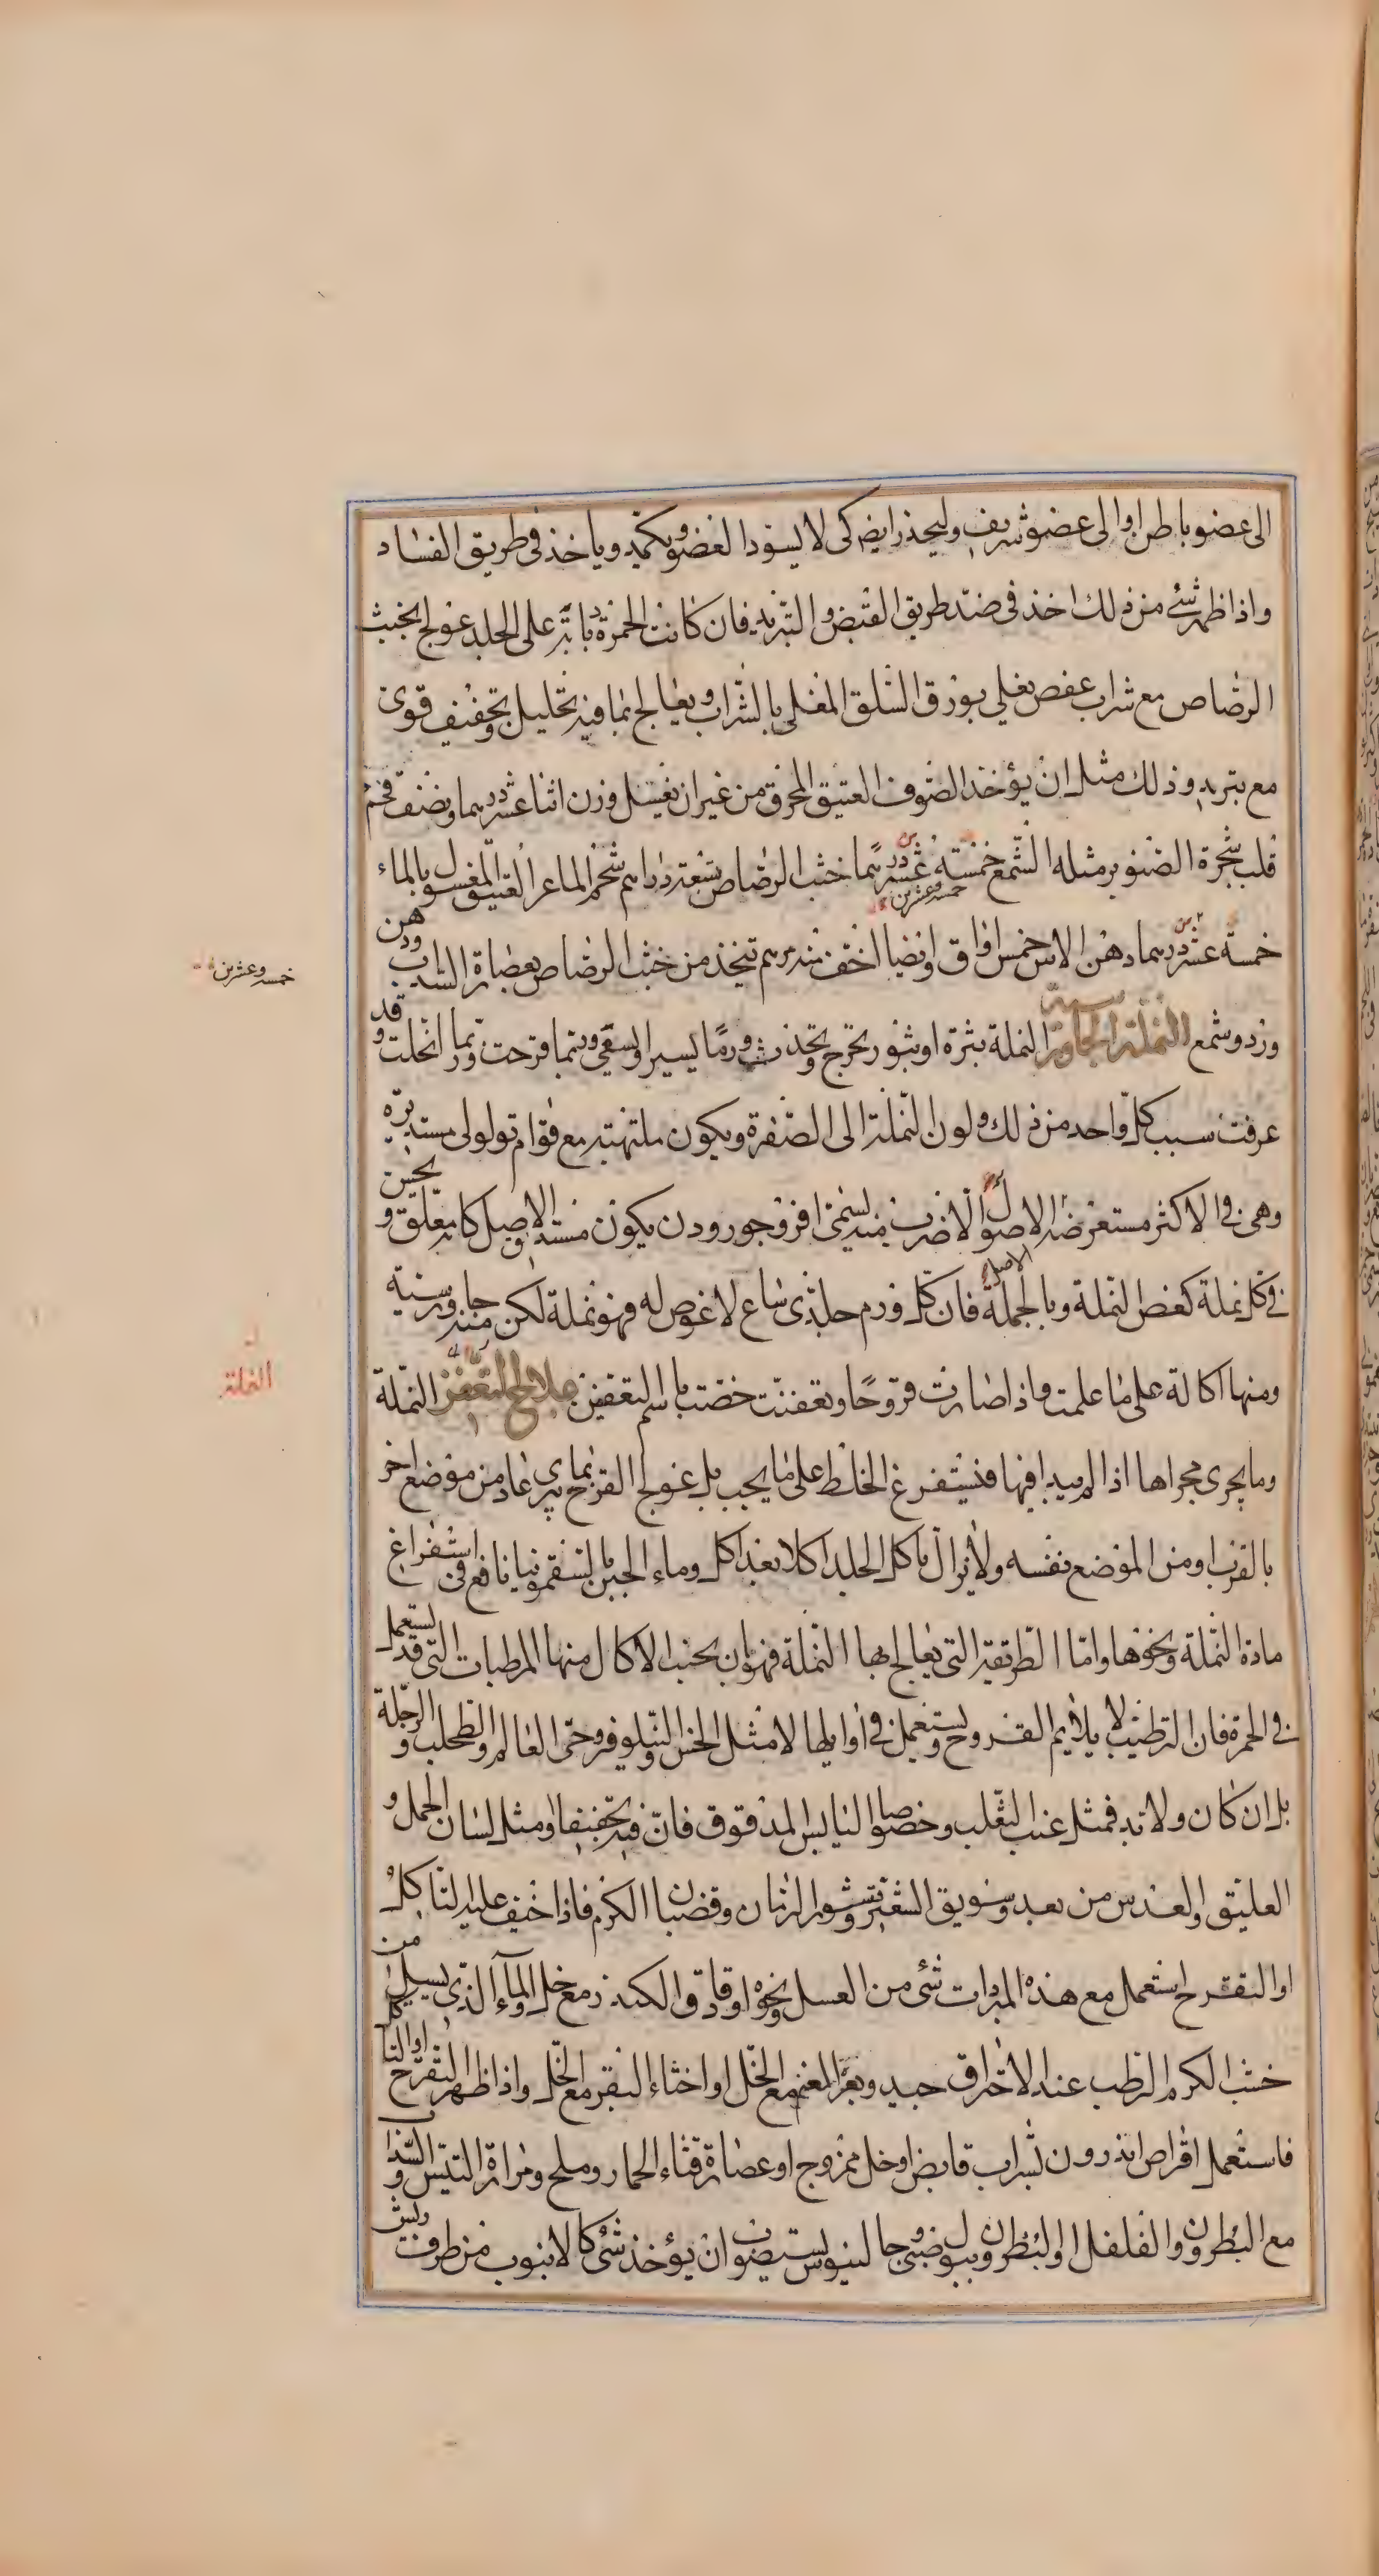 الى عضو باطن او الى عضو شريف وليحذر ايضا كى لا يسود العضو ويكمد وياخذ فى طريق الفساد
واذا ظهر شئ من ذلك اخذ فى ضد طريق القبض والتبريد فان كانت الحمرة دباتة على الجلد عولج بخبث
الرصاص مع شراب عفص يغلى بورق السلق المغلى بالشراب ويعالج بما فيه تحليل وتجفيف قوى
مع تبريد وذلك مثل ان يؤخذ الصوف العتيق المحرق من غير ان يغسل وزن اثنا عشر درهما ونصف فحم
قلب شجرة الصنوبر مثله الشمع خمسة عشر درهما خبث الرصاص تسعة دراهم شحم الماعز العتيق المغسول بالماء
خمسة وعشرين
خمسة عشر درهما دهن الاس خمس اواق وايضا اخف منه مرهم تتخذ من خبث الرصاص بعصارة السذاب ودهن
ورد وشمع النملة الجاورسية النملة بثرة او بثور تخرج وتحدث ورما يسيرا وتسعى وربما قرحت وربما انحلت وقد
عرفت سبب كل واحد من ذلك ولون النملة الى الصفرة ويكون ملتهبة مع قوام ثولولى مستديرة
وهى فى الاكثر مستعرضة الاصول الا ضرب منه يسمى افروجورودن يكون مستدق الاصل كانه معلق ويحس
فى كل نملة كعض النملة وبالجملة فان كل ورم جلدى ساع لا غوص له فهو نملة لكن منه جاورسية
ومنها اكالة على ما علمت واذا صارت قروحا وتعفنت خصت باسم التعفين علاج المتعفن النملة
وما يجرى مجراها اذا لم يبدا فيها فيستفرغ الخلط على ما يجب بل عولج القرح بما يبرى عاد من موضع اخر
بالقرب او من الموضع نفسه ولا يزال ياكل الجلد اكلا بعد اكل وماء الجبن بالسقمونيا نافع فى استفراغ
مادة النملة ونحوها واما الطريقة التى يعالج بها النملة فهو ان يجنب الاكال منها المرطبات التى قد تستعمل
فى الحمرة فان الترطيب لا يلايم القروح ويستعمل فى اوايلها لا مثل الخس والنيلوفر وحى العالم والطحلب والرجلة
بل ان كان ولا بد فمثل عنب الثعلب وخصوصا اليابس المدقوق فان فيه تجفيفا ومثل لسان الحمل و
العليق والعدس من بعد وسويق الشعير وقشور الرمان وقضبان الكرم فاذا خيف عليه التاكل
او التقرح استعمل مع هذه المبردات شئ من العسل ونحوه او دقاق الكندر مع خل والماء الذى يسيل من
خشب الكرم الرطب عند الاحتراق جيد وبعر الغنم مع الخل او اخثاء البقر مع الخل واذا ظهر التقرح او التاكل
فاستعمل اقراص اندرون بشراب قابض او خل ممزوج او عصارة قثاء الحمار وملح ومرارة التيس والسذاب
مع البطرون والفلفل او البطرون وببول صبى وجالينوس يستصوب ان يؤخذ شئ كالانبوب من طرف ريش
خمسة وعشرين
النملة